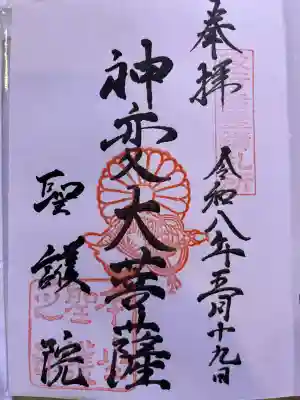 奉拝
令和八年五月十九日
神変大菩薩
聖護院